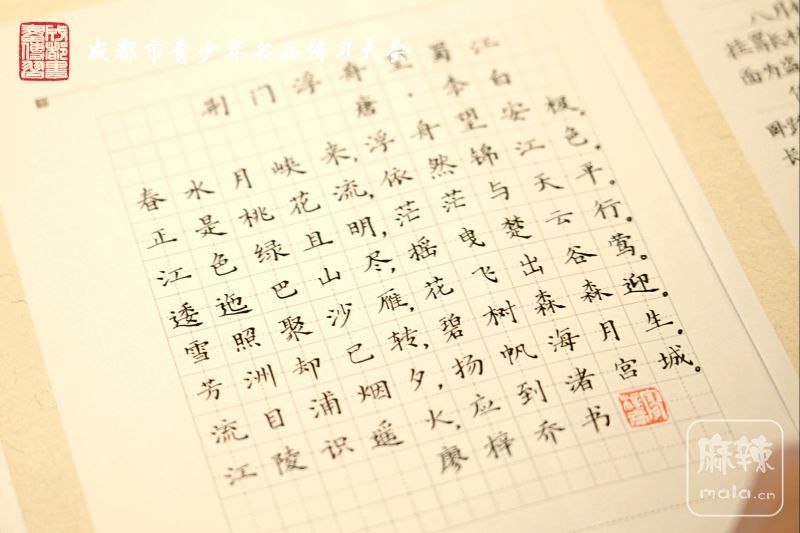 成都市青少年书画传习大会
荆门浮舟望蜀江
唐·李白
春水月峡来,浮舟望安极。
正是桃花流,依然锦江色。
江色绿且明,茫茫与天平。
逶迤巴山尽,摇曳楚云行。
雪照聚沙雁,花飞出谷莺。
芳洲却已转,碧树森森迎。
流目浦烟夕,扬帆海月生。
江陵识遥火,应到渚宫城。
廖梓乔书
八月
挂罥长
面为盗
长
麻辣
mala.cn